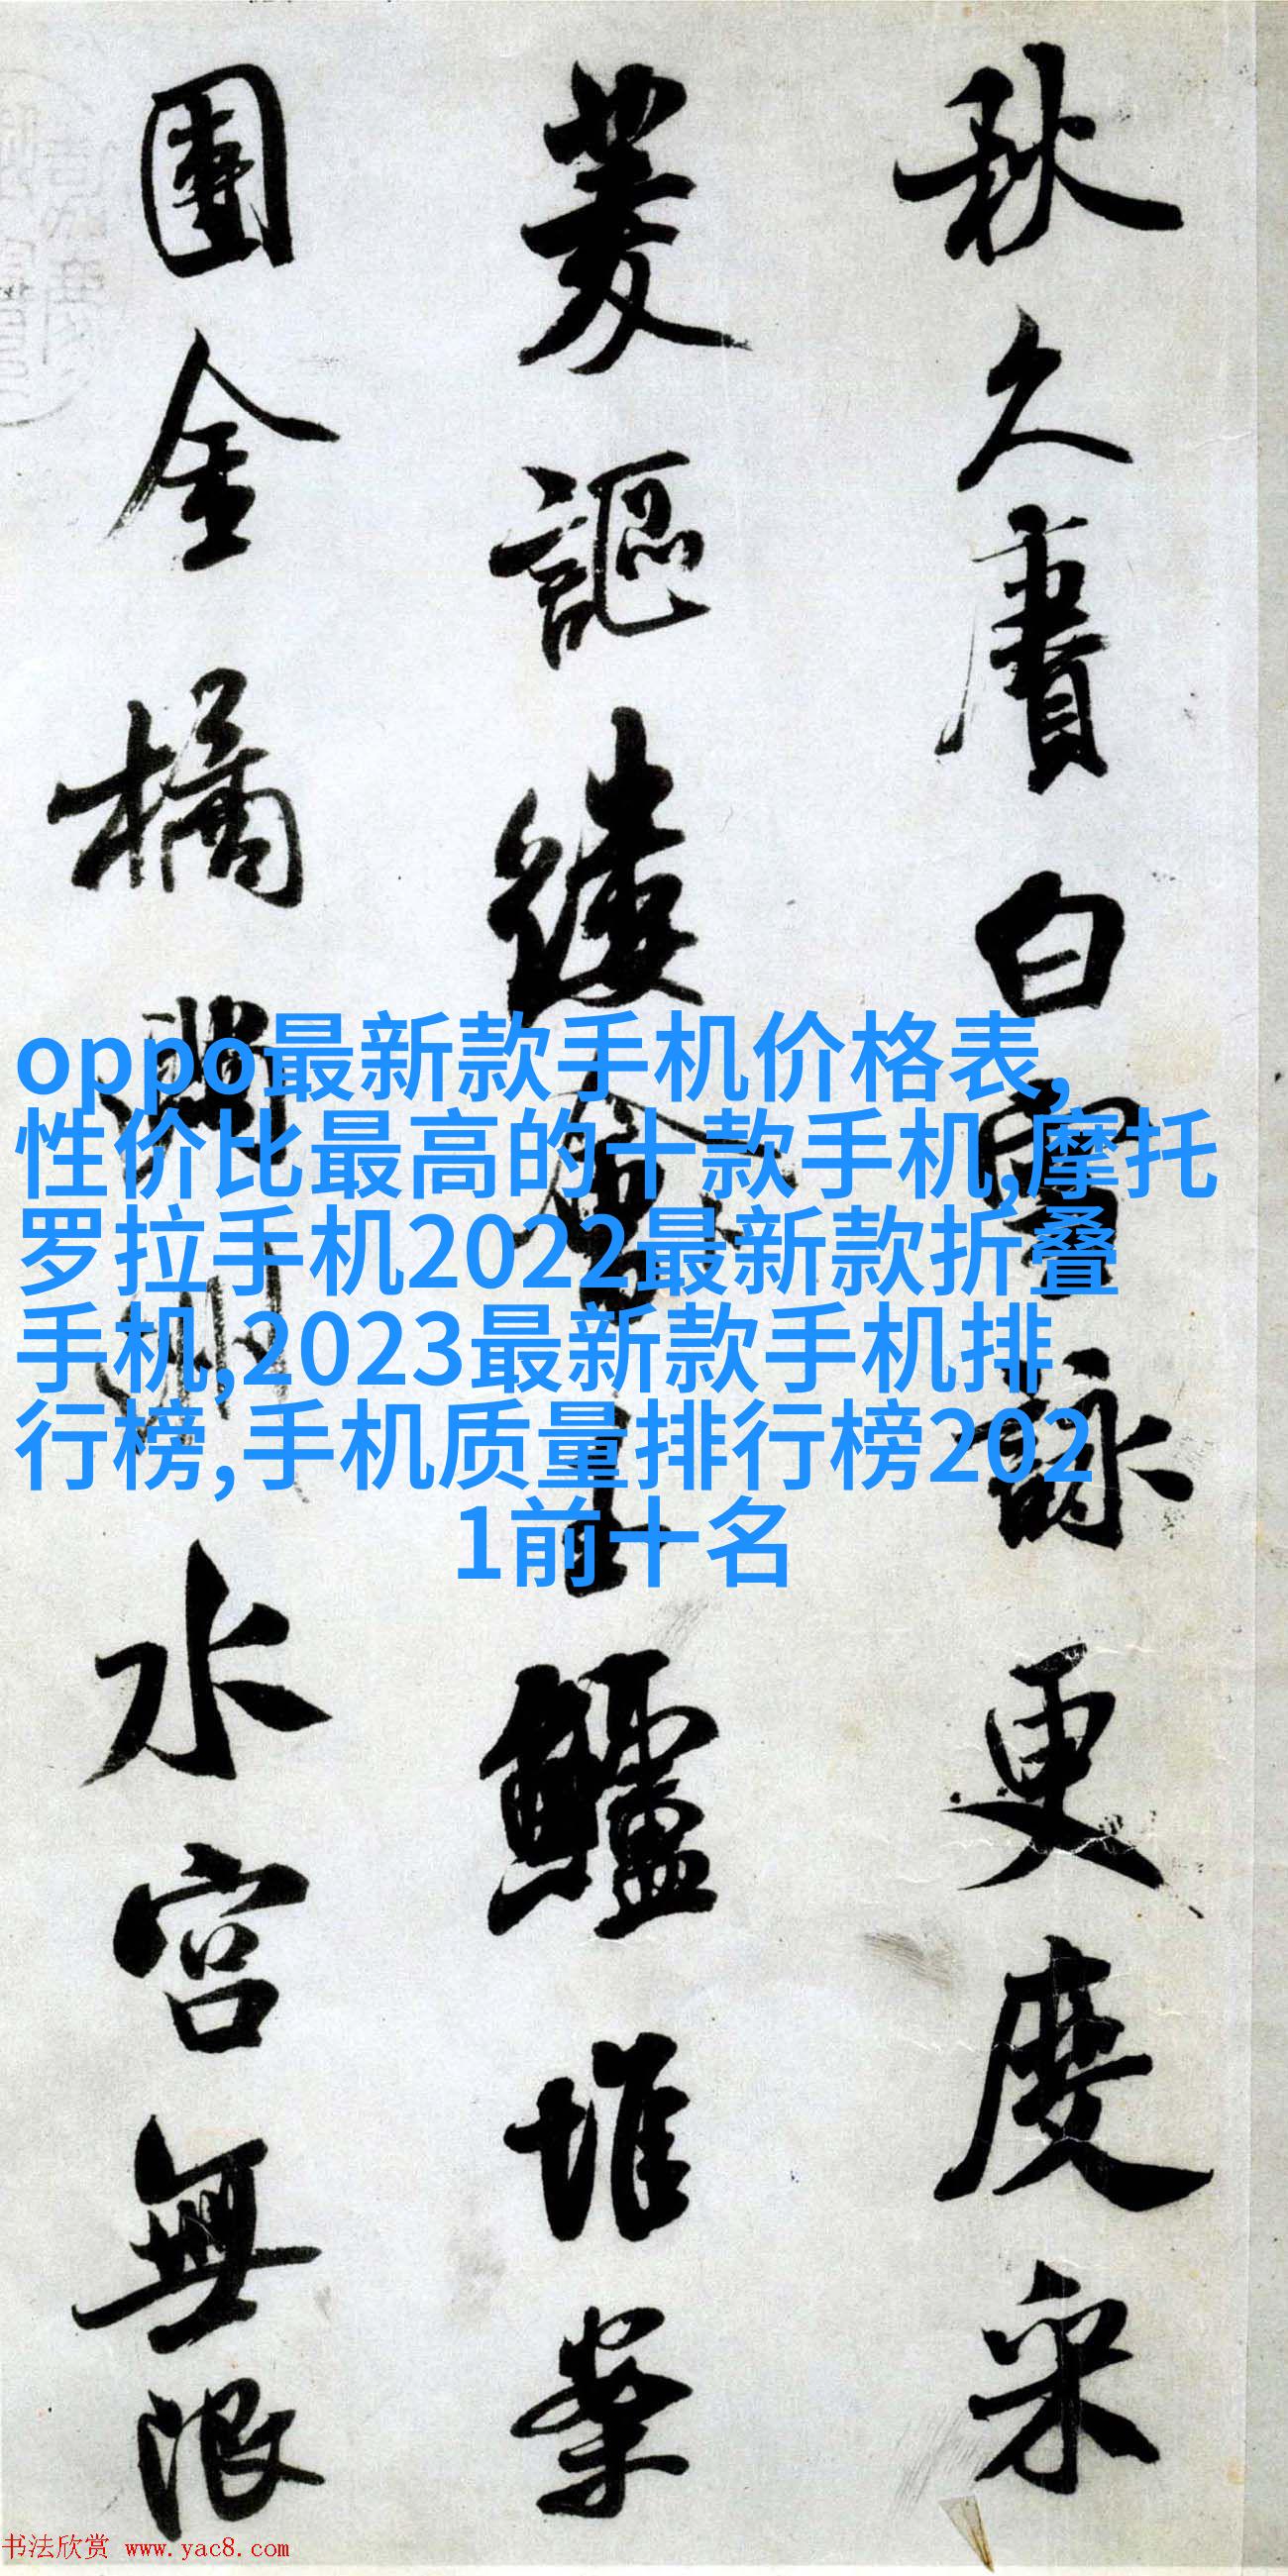 秋久賡白雪詠更度采
菱謳縷會玉鱸堆案
團金橘滿洲水宮無限
oppo最新款手机价格表,
性价比最高的十款手机,摩托
罗拉手机2022最新款折叠
手机,2023最新款手机排
行榜,手机质量排行榜202
1前十名
书法欣赏 www.yac8.com